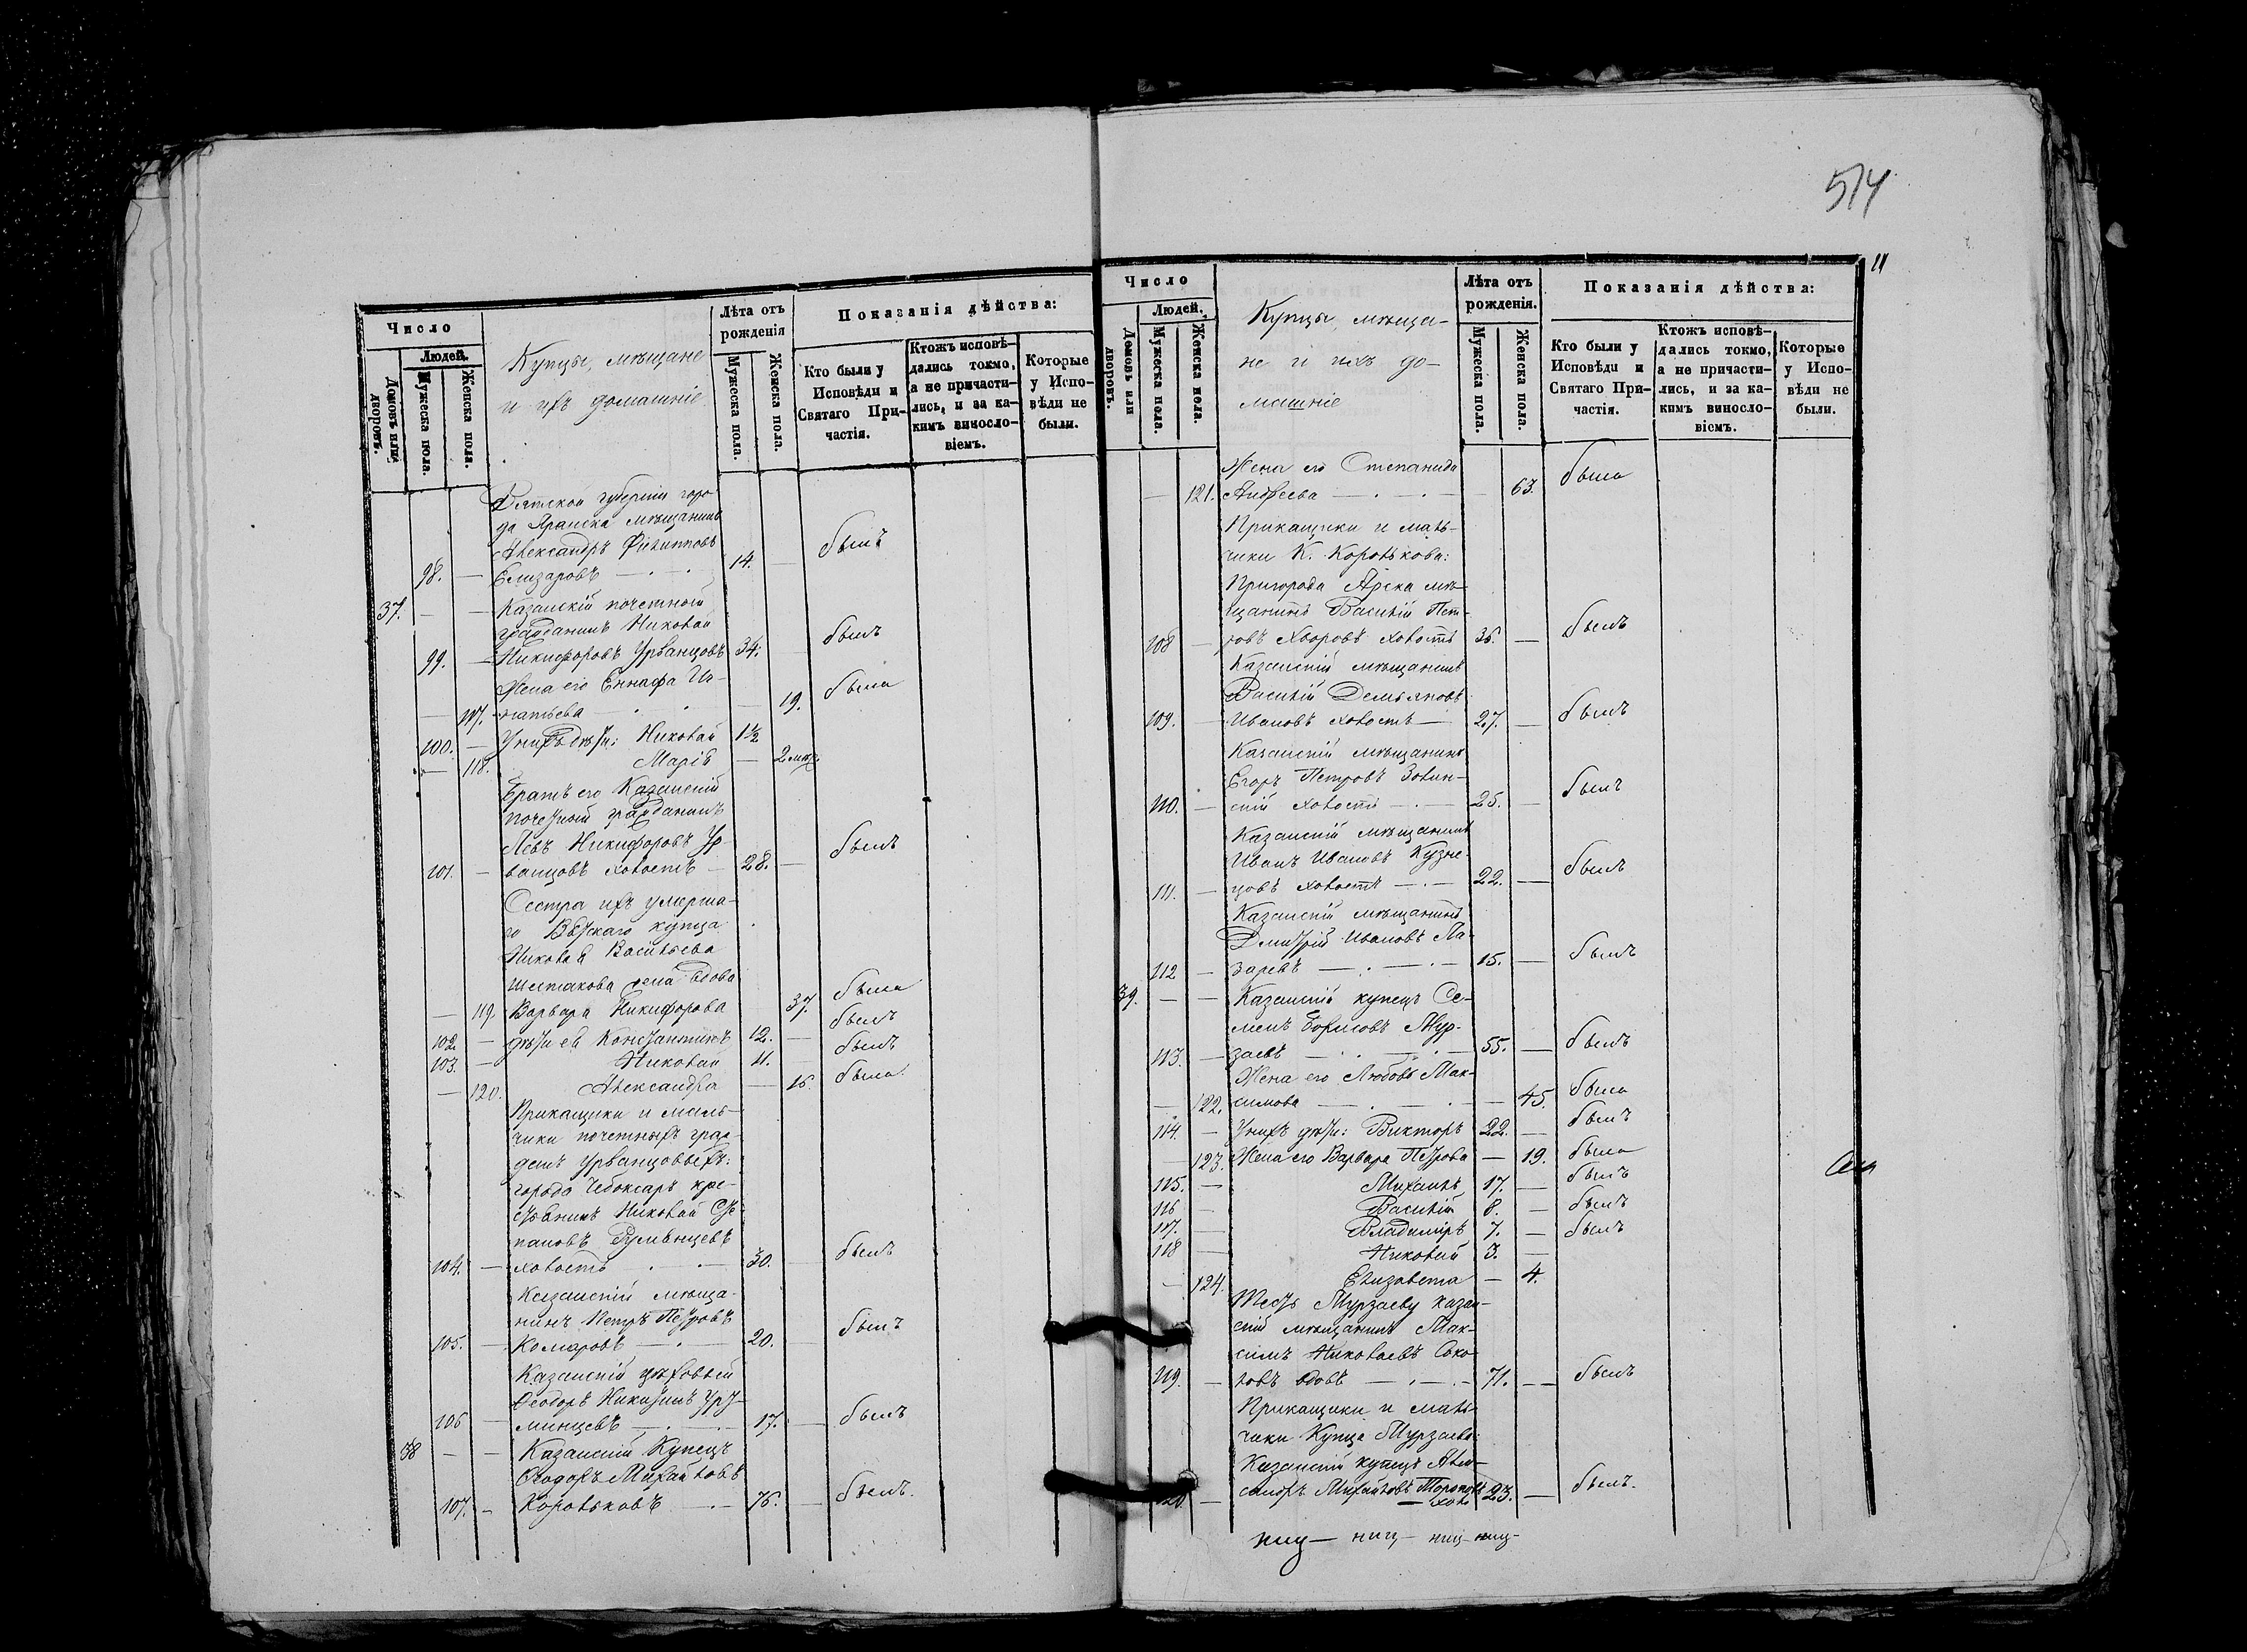 574
11
Число
Людей.
Домовъ или дворовъ.
Мужеска пола.
Женска пола.
Купцы, мѣщане
и ихъ домашніе.
Лѣта отъ
рожденія
Мужеска пола.
Женска пола.
Показанія дѣйства:
Кто были у
Исповѣди и
Святаго При-
частія.
Ктожъ исповѣ-
дались токмо,
а не причасти-
лись, и за ка-
кимъ виносло-
віемъ.
Которые
у Испо-
вѣди не
были.
Вятской губерніи горо-
да Яранска мѣщанинъ
Александръ Филипповъ
98. — Елизаровъ — 14. — былъ
37. — — Казанскій почетной
гражданинъ Николай
99. — Никифоровъ Урванцовъ 34. былъ
Жена его Еннафа Иг-
— 117. натьева — 19. была
100. — У нихъ дѣти: Николай 1½
— 118. Марія — 2 мѣс.
Братъ его Казанскій
почетной гражданинъ
Левъ Никифоровъ Ур-
101. — ванцовъ холостъ — 28. — былъ
Сестра ихъ умерша-
го Вятскаго купца
Николая Васильева
Шестакова жена вдова
— 119. Варвара Никифорова 37. была
102. — дѣти ея Константинъ 12. — былъ
103. — Николай 11. былъ
— 120. Александра — 16. была
Прикащики и маль-
чики почетныхъ граж-
данъ Урванцовыхъ:
города Чебоксаръ кре-
стьянинъ Николай Сте-
пановъ Румянцевъ
104. — холостъ — 30. — былъ
Казанскій мѣща-
нинъ Петръ Петровъ
105. — Комаровъ — 20. — былъ
Казанскій цѣховый
Ѳеодоръ Никитинъ Уру-
106 — минцевъ — 17. — былъ
38 — — Казанскій Купецъ
Ѳеодоръ Михайловъ
107. — Коровьковъ — 76. — былъ.
Число
Людей.
Домовъ или дворовъ.
Мужеска пола.
Женска пола.
Купцы, мѣща-
не и ихъ до-
машніе
Лѣта отъ
рожденія.
Мужеска пола.
Женска пола.
Показанія дѣйства:
Кто были у
Исповѣди и
Святаго При-
частія.
Ктожъ исповѣ-
дались токмо,
а не причасти-
лись, и за ка-
кимъ виносло-
віемъ.
Которые
у Испо-
вѣди не
были.
Жена его Степанида
— 121. Андреева — — 63. была
Прикащики и маль-
чики К. Коровькова:
Пригорода Арска мѣ-
щанинъ Василій Пет-
108 — ровъ Хворовъ холостъ 36. — былъ
Казанскій мѣщанинъ
Василій Демьяновъ
109. — Ивановъ холостъ — 27. — былъ
Казанскій мѣщанинъ
Егоръ Петровъ Золин-
110. — скій холостъ — 25. — былъ
Казанскій мѣщанинъ
Иванъ Ивановъ Кузне-
111. — цовъ холостъ — 22. — былъ
Казанскій мѣщанинъ
Дмитрій Ивановъ Ла-
112 — заревъ — 15. — былъ
39. — — Казанскій купецъ Се-
менъ Борисовъ Мур-
113 — заевъ — 55. — былъ
Жена его Любовь Мак-
— 122. симова — — 45. была
114. — У нихъ дѣти: Викторъ 22. — былъ
— 123. Жена его Варвара Петрова — 19. была
115. — Михаилъ 17. — былъ
116 — Василій 8. — былъ
117. — Владиміръ 7. — былъ
118 — Николай 3. —
— 124. Елизавета — 4.
Тесть Мурзаеву казан-
скій мѣщанинъ Мак-
симъ Николаевъ Соко-
119. — ловъ вдовъ — 71. — былъ
Прикащики и маль-
чики Купца Мурзаева:
Казанскій купецъ Алек-
сандръ Михайловъ Тороповъ
120 — холо 23. — былъ.
ниц — ниц — ниц — ниц —